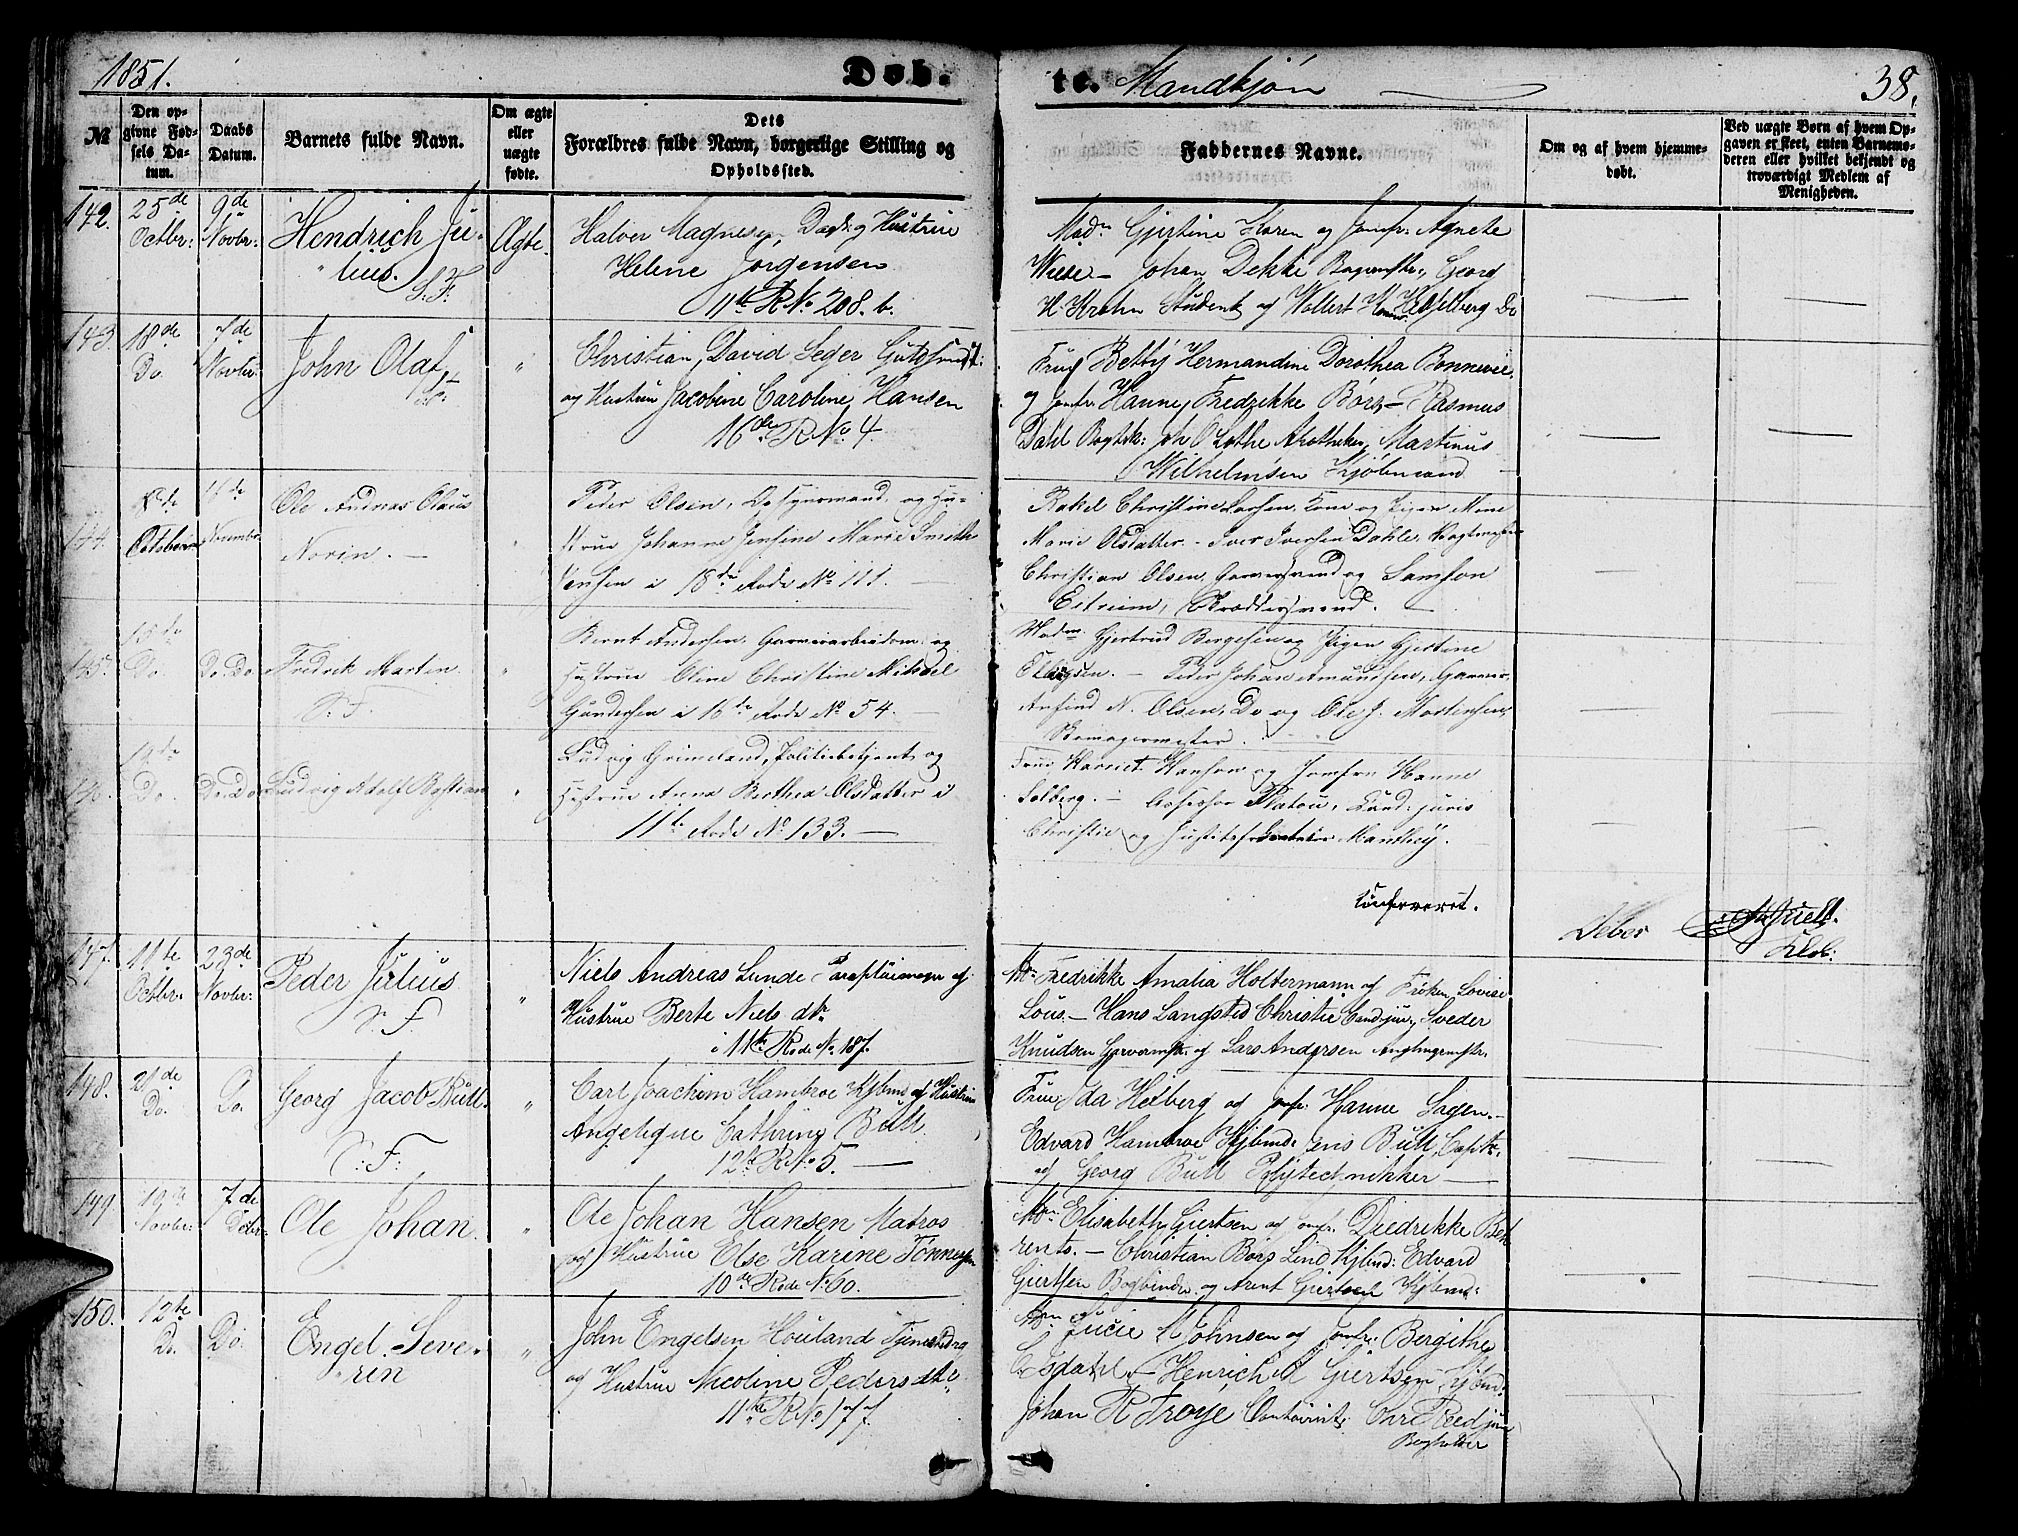 1851.
Døb.
te. Mandkjøn
38.
№
Den opgivne Fødsels Datum.
Daabs Datum.
Barnets fulde Navn.
Om ægte eller uægte fødte.
Dets
Forældres fulde Navn, borgerlige Stilling og
Opholdssted.
Faddernes Navne.
Om og af hvem hjemmedøbt.
Ved uægte Børn af hvem Opgaven er skeet, enten Barnemoderen eller hvilket bekjendt og troværdigt Medlem af Menigheden.
142. 25de Octbr: 9de Novbr:
Hendrich Ju-
lius. S. F.
Ægte
Halvor Magnesen, Dagk: og Hustrue
Helene Jørgensen
11te R. No. 208. b.
Mdm Gjertine Koren og Jomfr: Agnete
Wiese – Johan Dekke Bagermstr, Georg
H. Krohn Student og Wollert Hetlelberg Do
143. 18de Do. 7de Novbr:
John Olaf
Christian David Seger
og Hustrue Jacobine Caroline Hansen
16de R No. 4.
Frue Betty Hermandine Dorothea Bonnevie
og Jomfr. Hanne Fredrikke Børs – Rasmus
Dahl Bogtr: Joh Lothe Apotheker, Martinus
Wilhelmsen Kjøbmand
144. October 4de Novembr
Ole Andreas Olaus
Norin. —
Peder Olsen, og Hu-
strue Johanne Jensine Marie Smith
Jensen i 18de Rode No 111. —
Rakel Christine Larsen, Kone og Pigen Mine
Marie Olsdatter. – Iver Iversen Dahle,
Christian Olsen, Garversvend og Samson
Eitreim, Skræddersvend. —
145. 15de Do. Do. Do
Fredrik Martin
S. F.
Bernt Andersen, Garveriarbeider og
Hustrue Oline Christine Mikael
Gundersen i 16de Rode No 54. —
Madm Gjertrud Børgesen og Pigen Gjertine
Ellingsen. – Peder Johan Amundsen, Garver,
Anfind N. Olsen, Do og Ole J. Mortensen,
146. 19de Do. Do. Do
Ludvig Adolf Bastian
Ludvig Grimeland, Politiebetjent og
Hustrue Anna Berthea Olsdatter i
11te Rode No 133. —
Frue Harriet Hansen og Jomfru Hanne
Solberg. – Assessor Platou, Cand: juris
Christie og Justitssecretair Manthey.
Conferveret.
Deber
Klok:
147. 11te Octbr. 23de Novbr:
Peder Julius
S. F.
Niels Andreas Lunde Paraplüimager og
Hustrue Berte Niels dtr
i 11te Rode No. 187.
Fr: Fredrikke Amalia Holtermann og Frøken Lovise
Lous. – Hans Langsted Christie Cand. jur, Sveder
Knudsen Garvermstr. og Lars Andersen
148. 21de Do. Do.
Georg Jacob Bull.
S: F:
Carl Joachim Hambroe Kjbmd og Hustrue
Angelique Cathrine Bull.
12te R. No. 5. —
Frue Ida Heiberg og Jomfr. Hanne Sagen. –
Edvard Hambroe Kjbmd: Jens Bull, Capit:
og Georg Bull Polytechnikker —
149. 19de Novbr: 7de Debr.
Ole Johan
Ole Johan Hansen Matros
og Hustrue Else Karine Tønnesen
10de Rode No. 60.
Mdm Elisabeth Giertsen og Jomfr. Diedrikke Beh
rents. – Christian Børs Lind Kjbmd: Edvard
Giertsen Bogbinder og Arent Giertsen Kjbmd:
150. 12te Do. Do.
Engel Seve-
rin
John Engelsen Houland Tjenestedrg
og Hustrue Nicoline Peders dtr
11te R. No. 177.
Mdm Lucie M Johnsen og Jomfr. Bergithe
Gjertsen –
Johan R Troye Contoirist, Chr
Bogholder